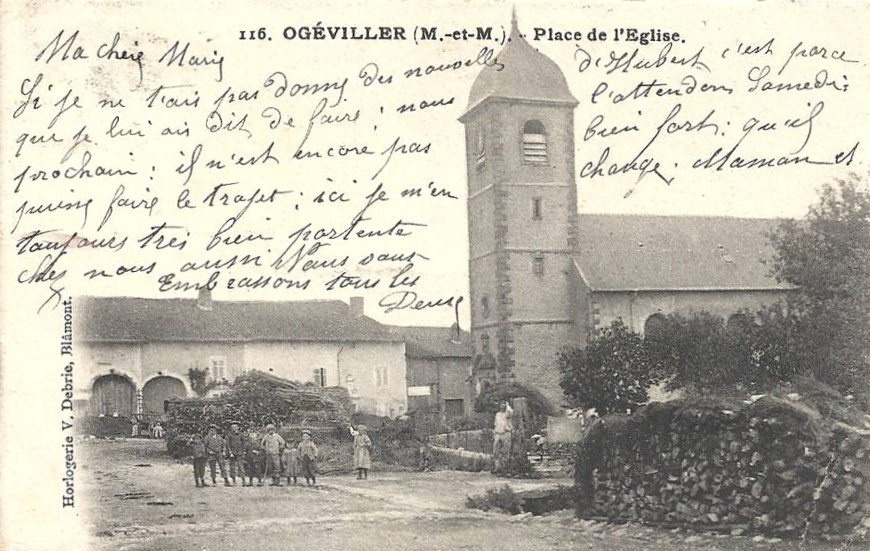 116. OGÉVILLER (M.-et-M.). - Place de l'Eglise.
Ma chère Marie
Si je ne t'ais pas donné des nouvelles
d'Hubert c'est parce
que je lui ais dit de faire, nous
l'attendons Samedi
prochain: il n'est encore pas
bien fort: qu'il
faire le trajet; ici je m'en
change. Maman et
toujours très bien portente
chez nous aussi Nous vous
Embrassons tous les
Deux
Horlogerie V. Debrie, Blâmont.